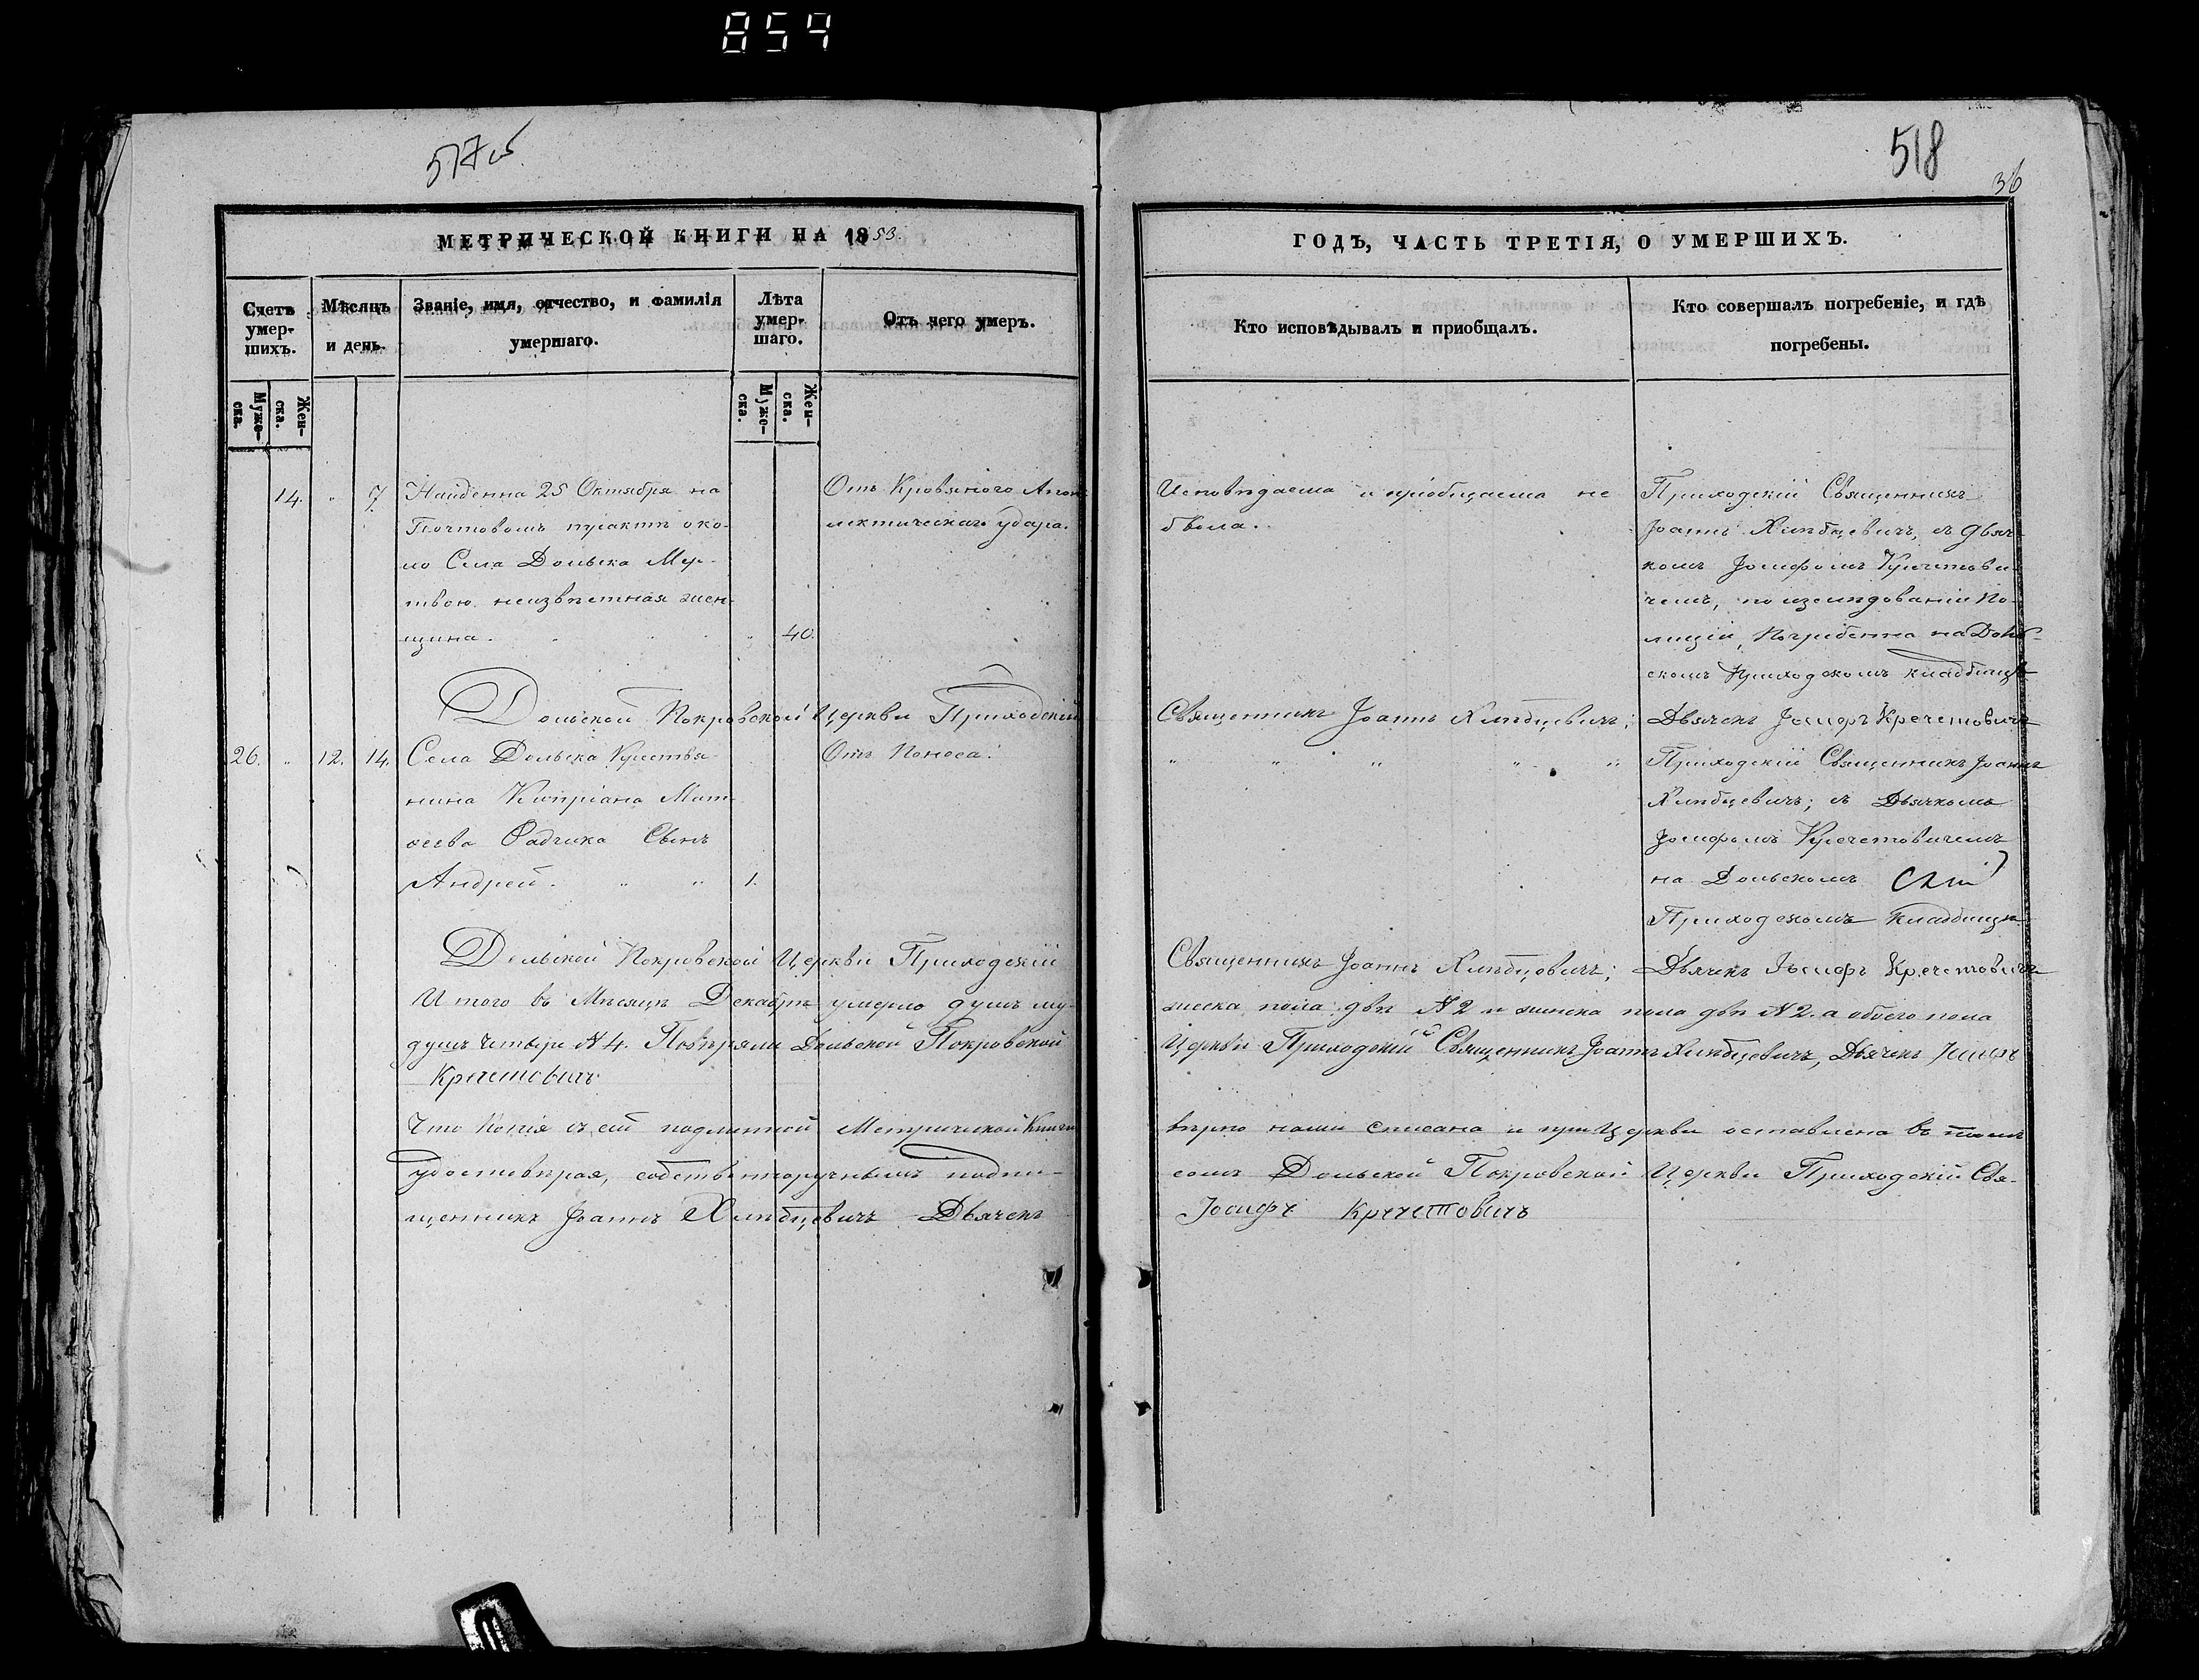 859
517об
518
36
МЕТРИЧЕСКОЙ КНИГИ НА 1853
ГОДЪ, ЧАСТЬ ТРЕТІЯ, О УМЕРШИХЪ.
Счетъ умер-шихъ.
Мѣсяцъ и день.
Званіе, имя, отчество, и фамилія
умершаго.
Лѣта умер-шаго.
Отъ чего умеръ.
Кто исповѣдывалъ и приобщалъ.
Кто совершалъ погребеніе, и гдѣ
погребены.
Муже-ска.
Жен-ска.
Муже-ска.
Жен-ска.
14. " 7. Найденна 25 Октября на
Почтовомъ трактѣ око-
ло Села Дольска Мер-
твою неизвѣстная жен-
щина. " 40.
Отъ Кровяного Апоп-
лектическаго удара.
Исповѣдаема и пріобщаема не
была.
Приходскій Священникъ
Іоаннъ Хлѣбцевичъ, съ Дьяч-
комъ Іосифомъ Кречетови-
чемъ, по изслѣдованіи По-
лиціи, Погребенна на Доль-
скомъ Приходскомъ кладбищѣ
Дольской Покровской Церкви Приходскій
Священникъ Іоаннъ Хлѣбцевичъ; Дьячекъ Іосифъ Кречетовичъ
26. " 12. 14. Села Дольска Крестья-
нина Кипріана Мат-
ѳеева Радчика Сынъ
Андрей. " " 1.
Отъ Поноса.
" " " " "
Приходскій Священникъ Іоаннъ
Хлѣбцевичъ; съ Дьячкомъ
Іосифомъ Кречетовичемъ
на Дольскомъ
Приходскомъ Кладбищѣ
Дольской Покровской Церкви Приходскій
Священникъ Іоаннъ Хлѣбцевичъ; Дьячекъ Іосифъ Кречетовичъ
Итого въ Мѣсяцѣ Декабрѣ умерло душъ му-
жеска пола двѣ № 2 и женска пола двѣ № 2. а обоего пола
душъ четыре № 4. Повѣряли Дольской Покровской
Церкви Приходскій Священникъ Іоаннъ Хлѣбцевичъ, Дьячекъ Іосифъ
Кречетовичъ
Что Копія съ сей подлинной Метрической Книги
вѣрно нами списана и при Церкви оставлена въ томъ
удостовѣряя, собственноручнымъ подпи-
сомъ Дольской Покровской Церкви Приходскій Свя-
щенникъ Іоаннъ Хлѣбцевичъ Дьячекъ
Іосифъ Кречетовичъ